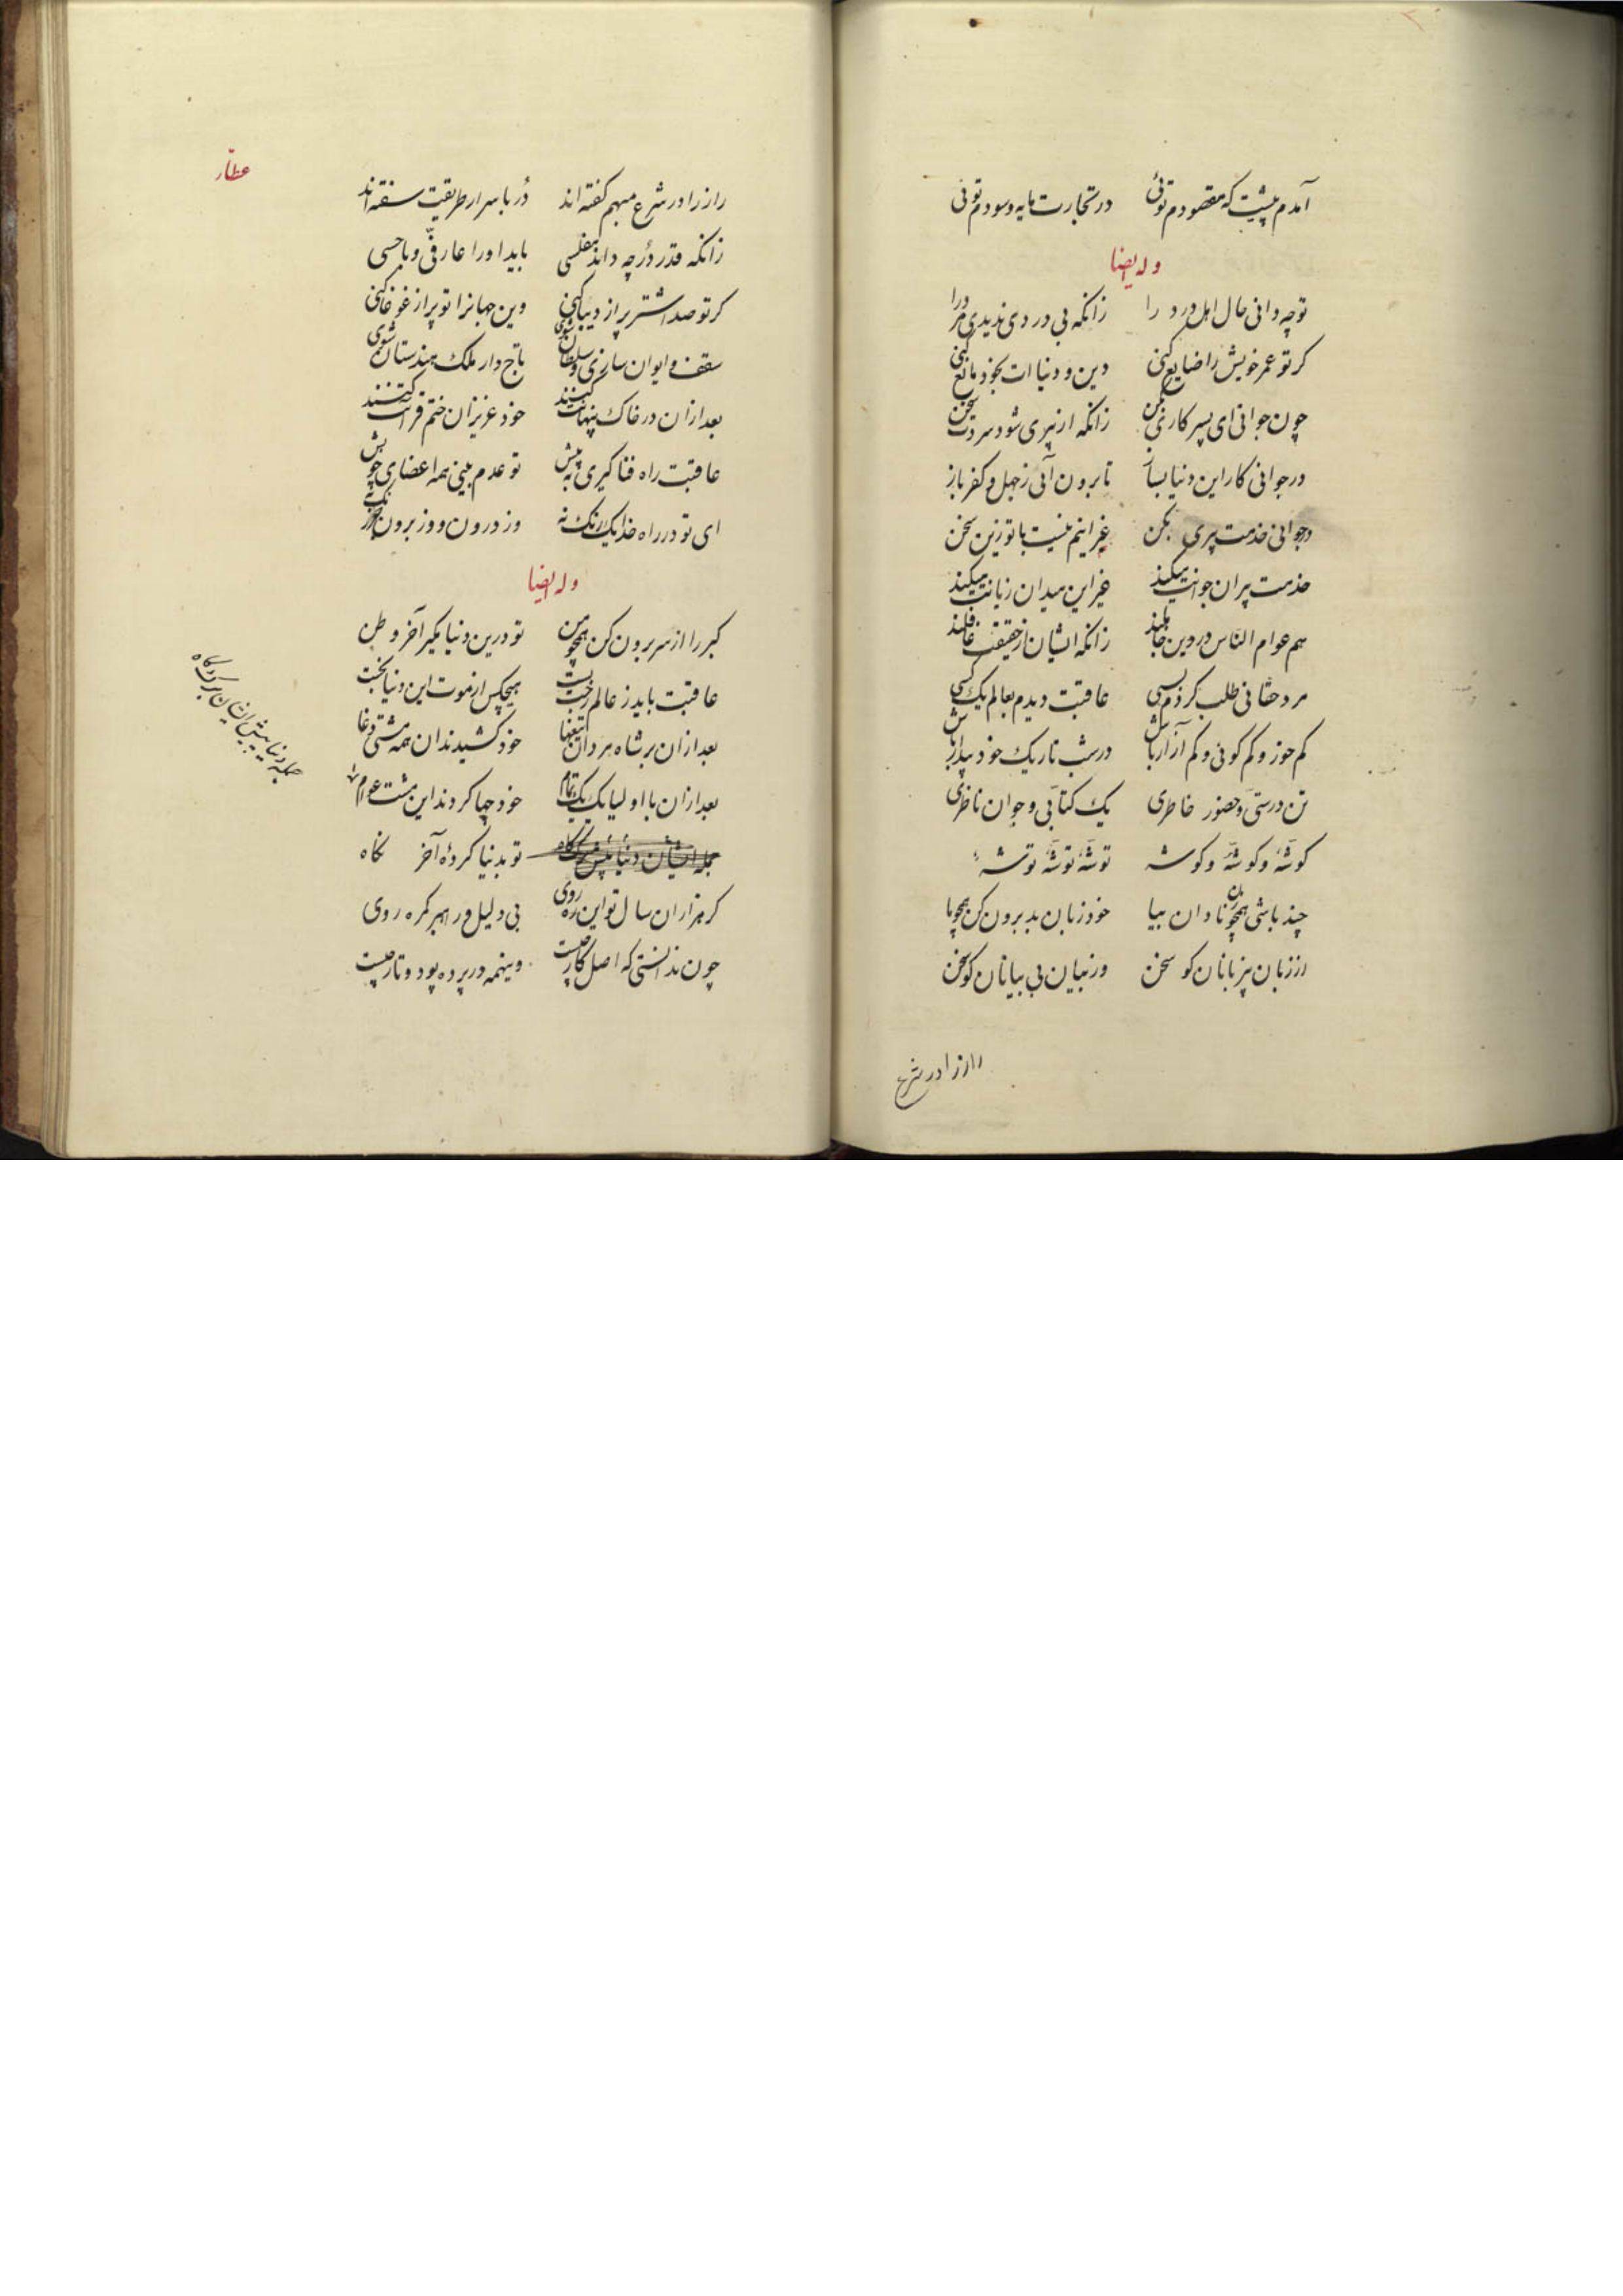 آمدم پیشت که مقصودم توئی در تجارت مایه و سودم توئی
وله ایضا
تو چه دانی حال اهل درد را زانکه بی دردی ندیدی مرد را
کر تو عمر خویش را ضایع کنی دین و دنیا ات بخود مانع کنی
چون جوانی ای پسر کاری بکن زانکه از پیری شود سردت سخن
در جوانی کار این دنیا بساز تا برون آئی ز جهل و کفر باز
در جوانی خدمت پیری بکن غیر اینم نیست با تو زین سخن
خدمت پیران جوانت میکند خیر این میدان زبانت میکند
هم عوام النّاس در دین جاهلند زانکه ایشان از حقیقت غافلند
مرد حقّانی طلب کردم بسی عاقبت دیدم بعالم یک کسی
کم خور و کم کوی و کم آزار باش در شب تاریک خود بیدار باش
تن درستی و حضور خاطری یک کتابی و جوان ناظری
کوشهٔ و کوشهٔ و کوشه توشهٔ توشهٔ توشهٔ
چند باشی همچو نادان بیا خود زبان بد برون کن همچو ما
از زبان بیزبانان کو سخن وز بیان بی بیانان کو سخن
راز را در شرع
عطّار
راز را در شرع مبهم کفته اند دُر باسرار طریقت سفته اند
زانکه قدر دُر چه داند مفلسی باید او را عارفّی و با حسی
کر تو صد اشتر پر از دیبا کنی وین جهانرا تو پر از غوغا کنی
سقف و ایوان سازی و سلطان شوی تاج دار ملک هندستان شوی
بعد ازان در خاک پنهانت کنند خود عزیزان ختم قرآنت کنند
عاقبت راه فنا کیری به پیش تو عدم بینی همه اعضای خویش
ای تو در راه خدا یک رنک نه وز درون و وز برون
وله ایضا
کبر را از سر برون کن همچو من تو درین دنیا مکیر آخر وطن
عاقبت باید ز عالم رخت بست هیچکس از موت این دنیا نجست
بعد ازان بر شاه مردان تیغها خود کشیدند ان همه مشتی دغا
بعد ازان با اولیا یک یک تمام خود جها کردند این مشت عوام
جمله ایشان دنیا پیش کاه تو بدنیا کردهٔ آخر نکاه
جمله دنیا پیش ایشان برک کاه
کر هزاران سال تو این ره روی بی دلیل و راهبر کمره روی
چون ندانستی که اصل کار چیست وینهمه در پرده پود و تار چیست